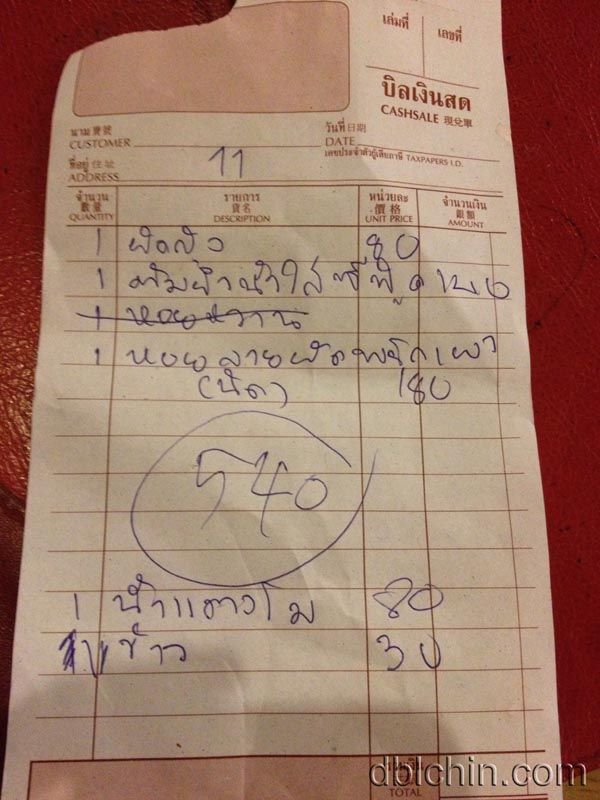 เล่มที่ เลขที่
บิลเงินสด
CASHSALE 現兌單
นาม 寶號
CUSTOMER
วันที่ 日期
DATE
ที่อยู่ 住址
ADDRESS
11
เลขประจำตัวผู้เสียภาษี TAXPAPERS I.D.
จำนวน รายการ หน่วยละ จำนวนเงิน
數量 貨名 價格 銀額
QUANTITY DESCRIPTION UNIT PRICE AMOUNT
1 80
1 ต้มยำน้ำใส ซีฟู้ด 170
1 หอยหวาน
1 หอยลายผัดพริกเผา
180
540
1 น้ำแตงโม 80
ข้าว 30
TOTAL
dblchin.com